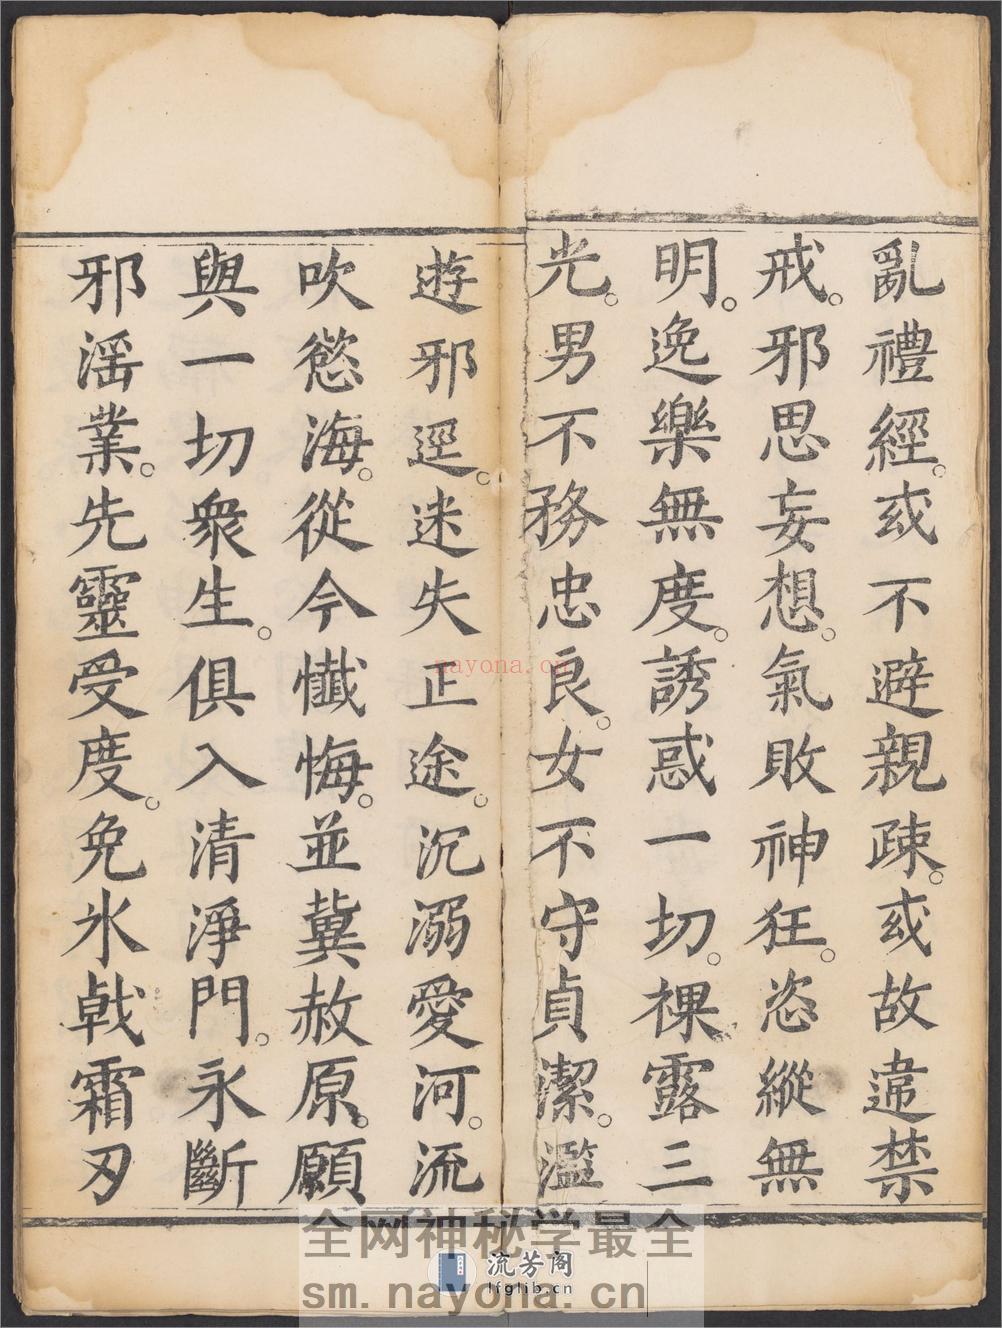 亂禮經。或不避親疎。或故違禁
戒。邪思妄想。氣敗神狂。恣縱無
明。逸樂無度。誘惑一切。裸露三
光。男不務忠良。女不守貞潔。濫
遊邪逕。迷失正途。沉溺愛河。流
吹慾海。從今懺悔。並冀赦原。願
與一切衆生。俱入清淨門。永斷
邪滛業。先靈受度。免氷戟霜刃
nayona.cn
全网神秘学最全
流芳阁
lfglib.cn
sm.nayona.cn